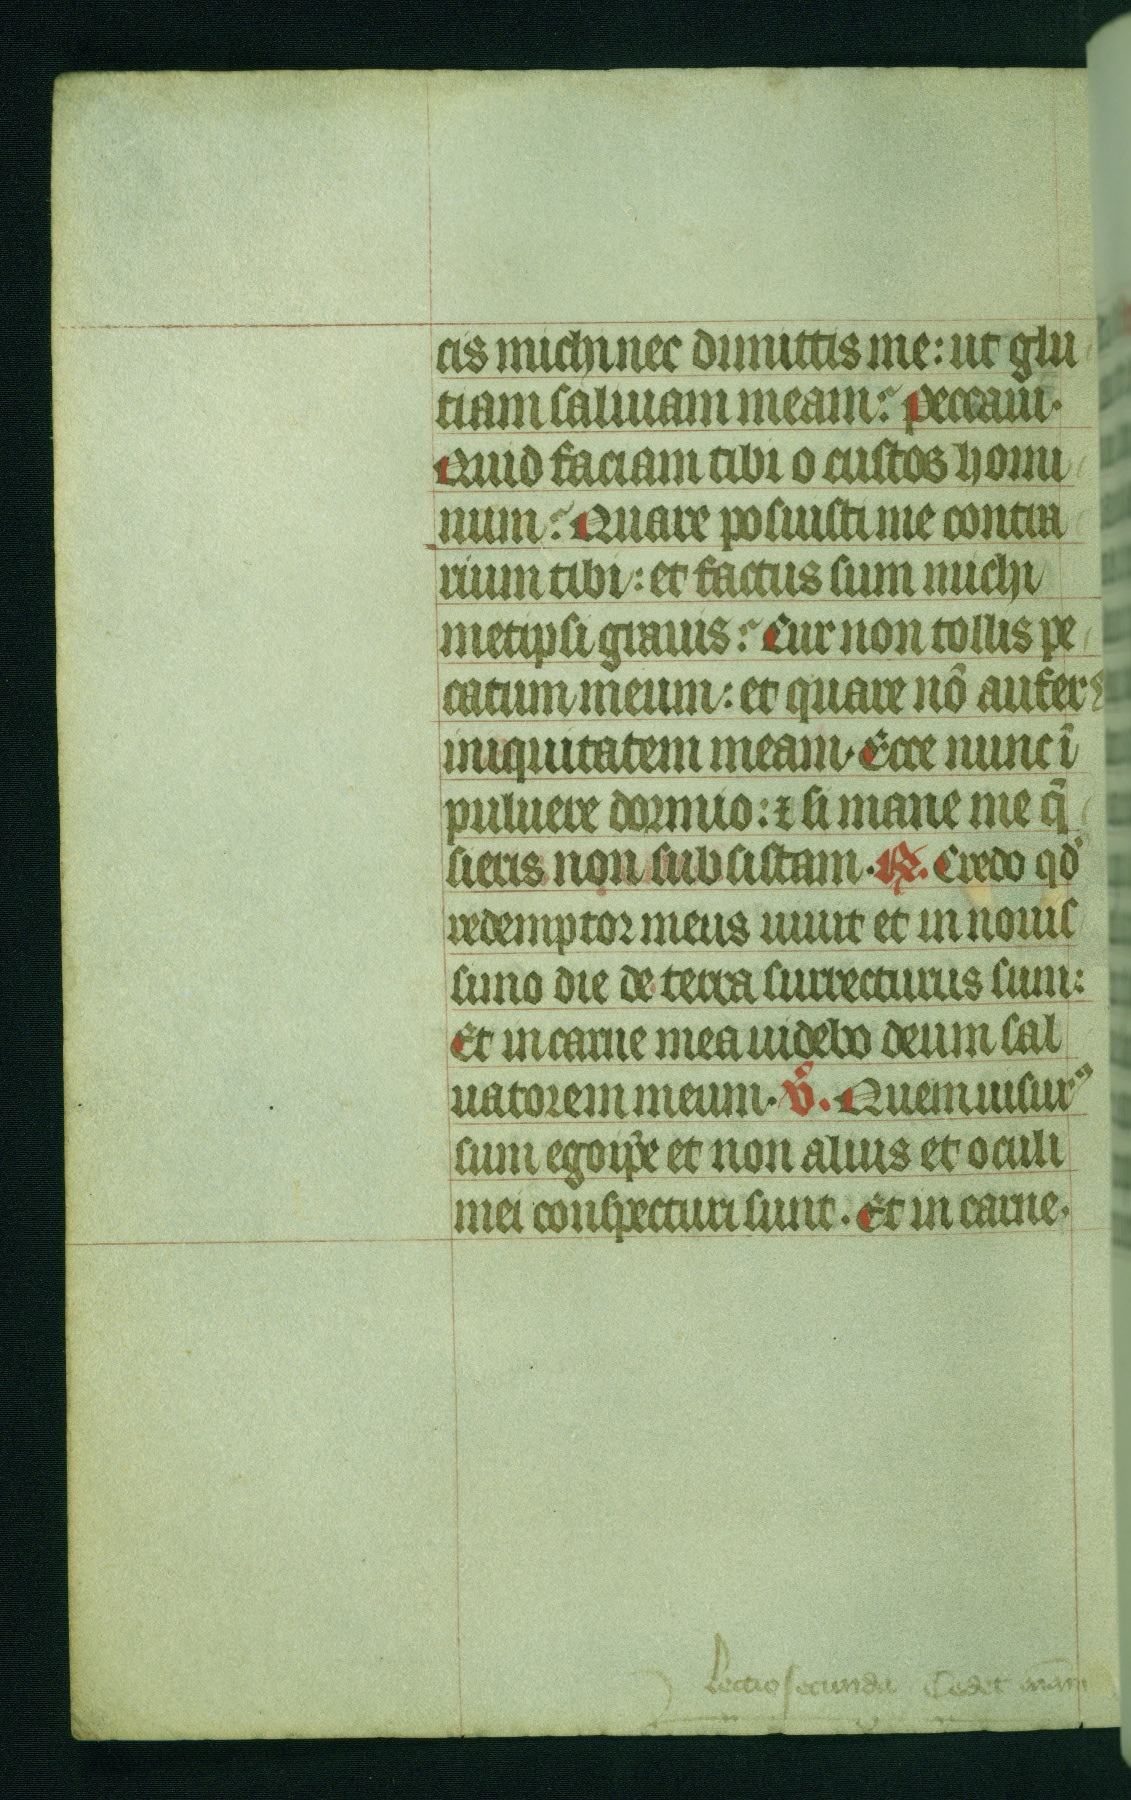 cis michi nec dimittis me: ut glu
tiam saliuam meam? Peccaui.
Quid faciam tibi o custos homi
num? Quare posuisti me contra
rium tibi: et factus sum michi
metipsi grauis? Cur non tollis pe
catum meum: et quare nō aufers
iniquitatem meam. Ecce nunc ī
puluere dormio: ⁊ si mane me q̄
sieris non subsistam. ℟. Credo qd̓
redemptor meus uiuit et in nouis
simo die de terra surrecturus sum:
Et in carne mea uidebo deum sal
uatorem meum. ℣. Quem uisurꝰ
sum ego ip̄e et non alius et oculi
mei conspecturi sunt. Et in carne.
Lectio secunda Tedet aīam